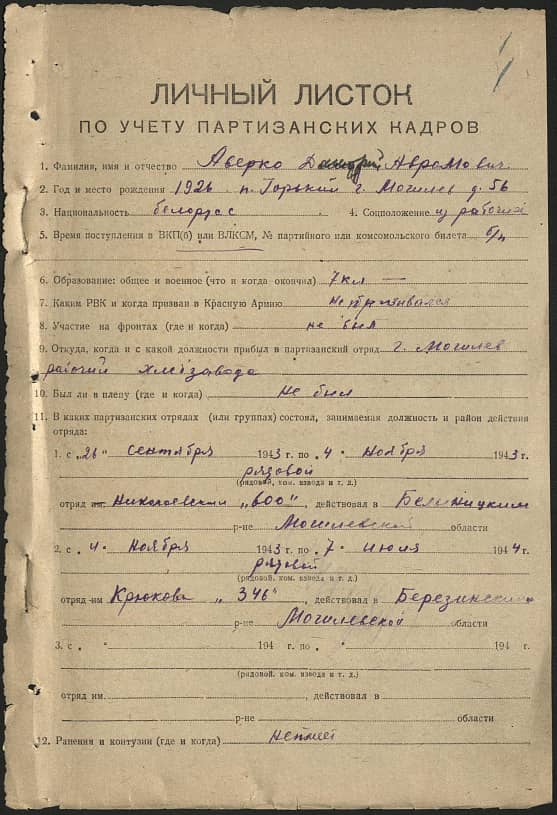 ЛИЧНЫЙ ЛИСТОК
ПО УЧЕТУ ПАРТИЗАНСКИХ КАДРОВ
1. Фамилия, имя и отчество Аверко Дмитрий Абрамович
2. Год и место рождения 1926 п. Горький г. Могилев д. 56
3. Национальность белорус 4. Соцположение из рабочих
5. Время поступления в ВКП(б) или ВЛКСМ, № партийного или комсомольского билета б/п
6. Образование: общее и военное (что и когда окончил) 7 кл —
7. Каким РВК и когда призван в Красную Армию не призывался
8. Участие на фронтах (где и когда) не был
9. Откуда, когда и с какой должности прибыл в партизанский отряд г. Могилев
рабочий хлебзавода
10. Был ли в плену (где и когда) не был
11. В каких партизанских отрядах (или группах) состоял, занимаемая должность и район действия
отряда:
1. с „26" сентября 1943 г. по „4 " ноября 1943 г.
рядовой
(рядовой, ком. взвода и т. д.)
отряд им. Николаевский „600", действовал в Белыницким
р-не Могилевской области
2. с „4 " ноября 1943 г. по „7 " июля 1944 г.
рядовой
(рядовой, ком. взвода и т. д.)
отряд им Крюкова „346", действовал в Березинский
р-не Могилевской области
3. с „ " 194 г. по „ " 194 г.
(рядовой, ком. взвода и т. д.)
отряд им. , действовал в
р-не области
12. Ранения и контузии (где и когда) не имел